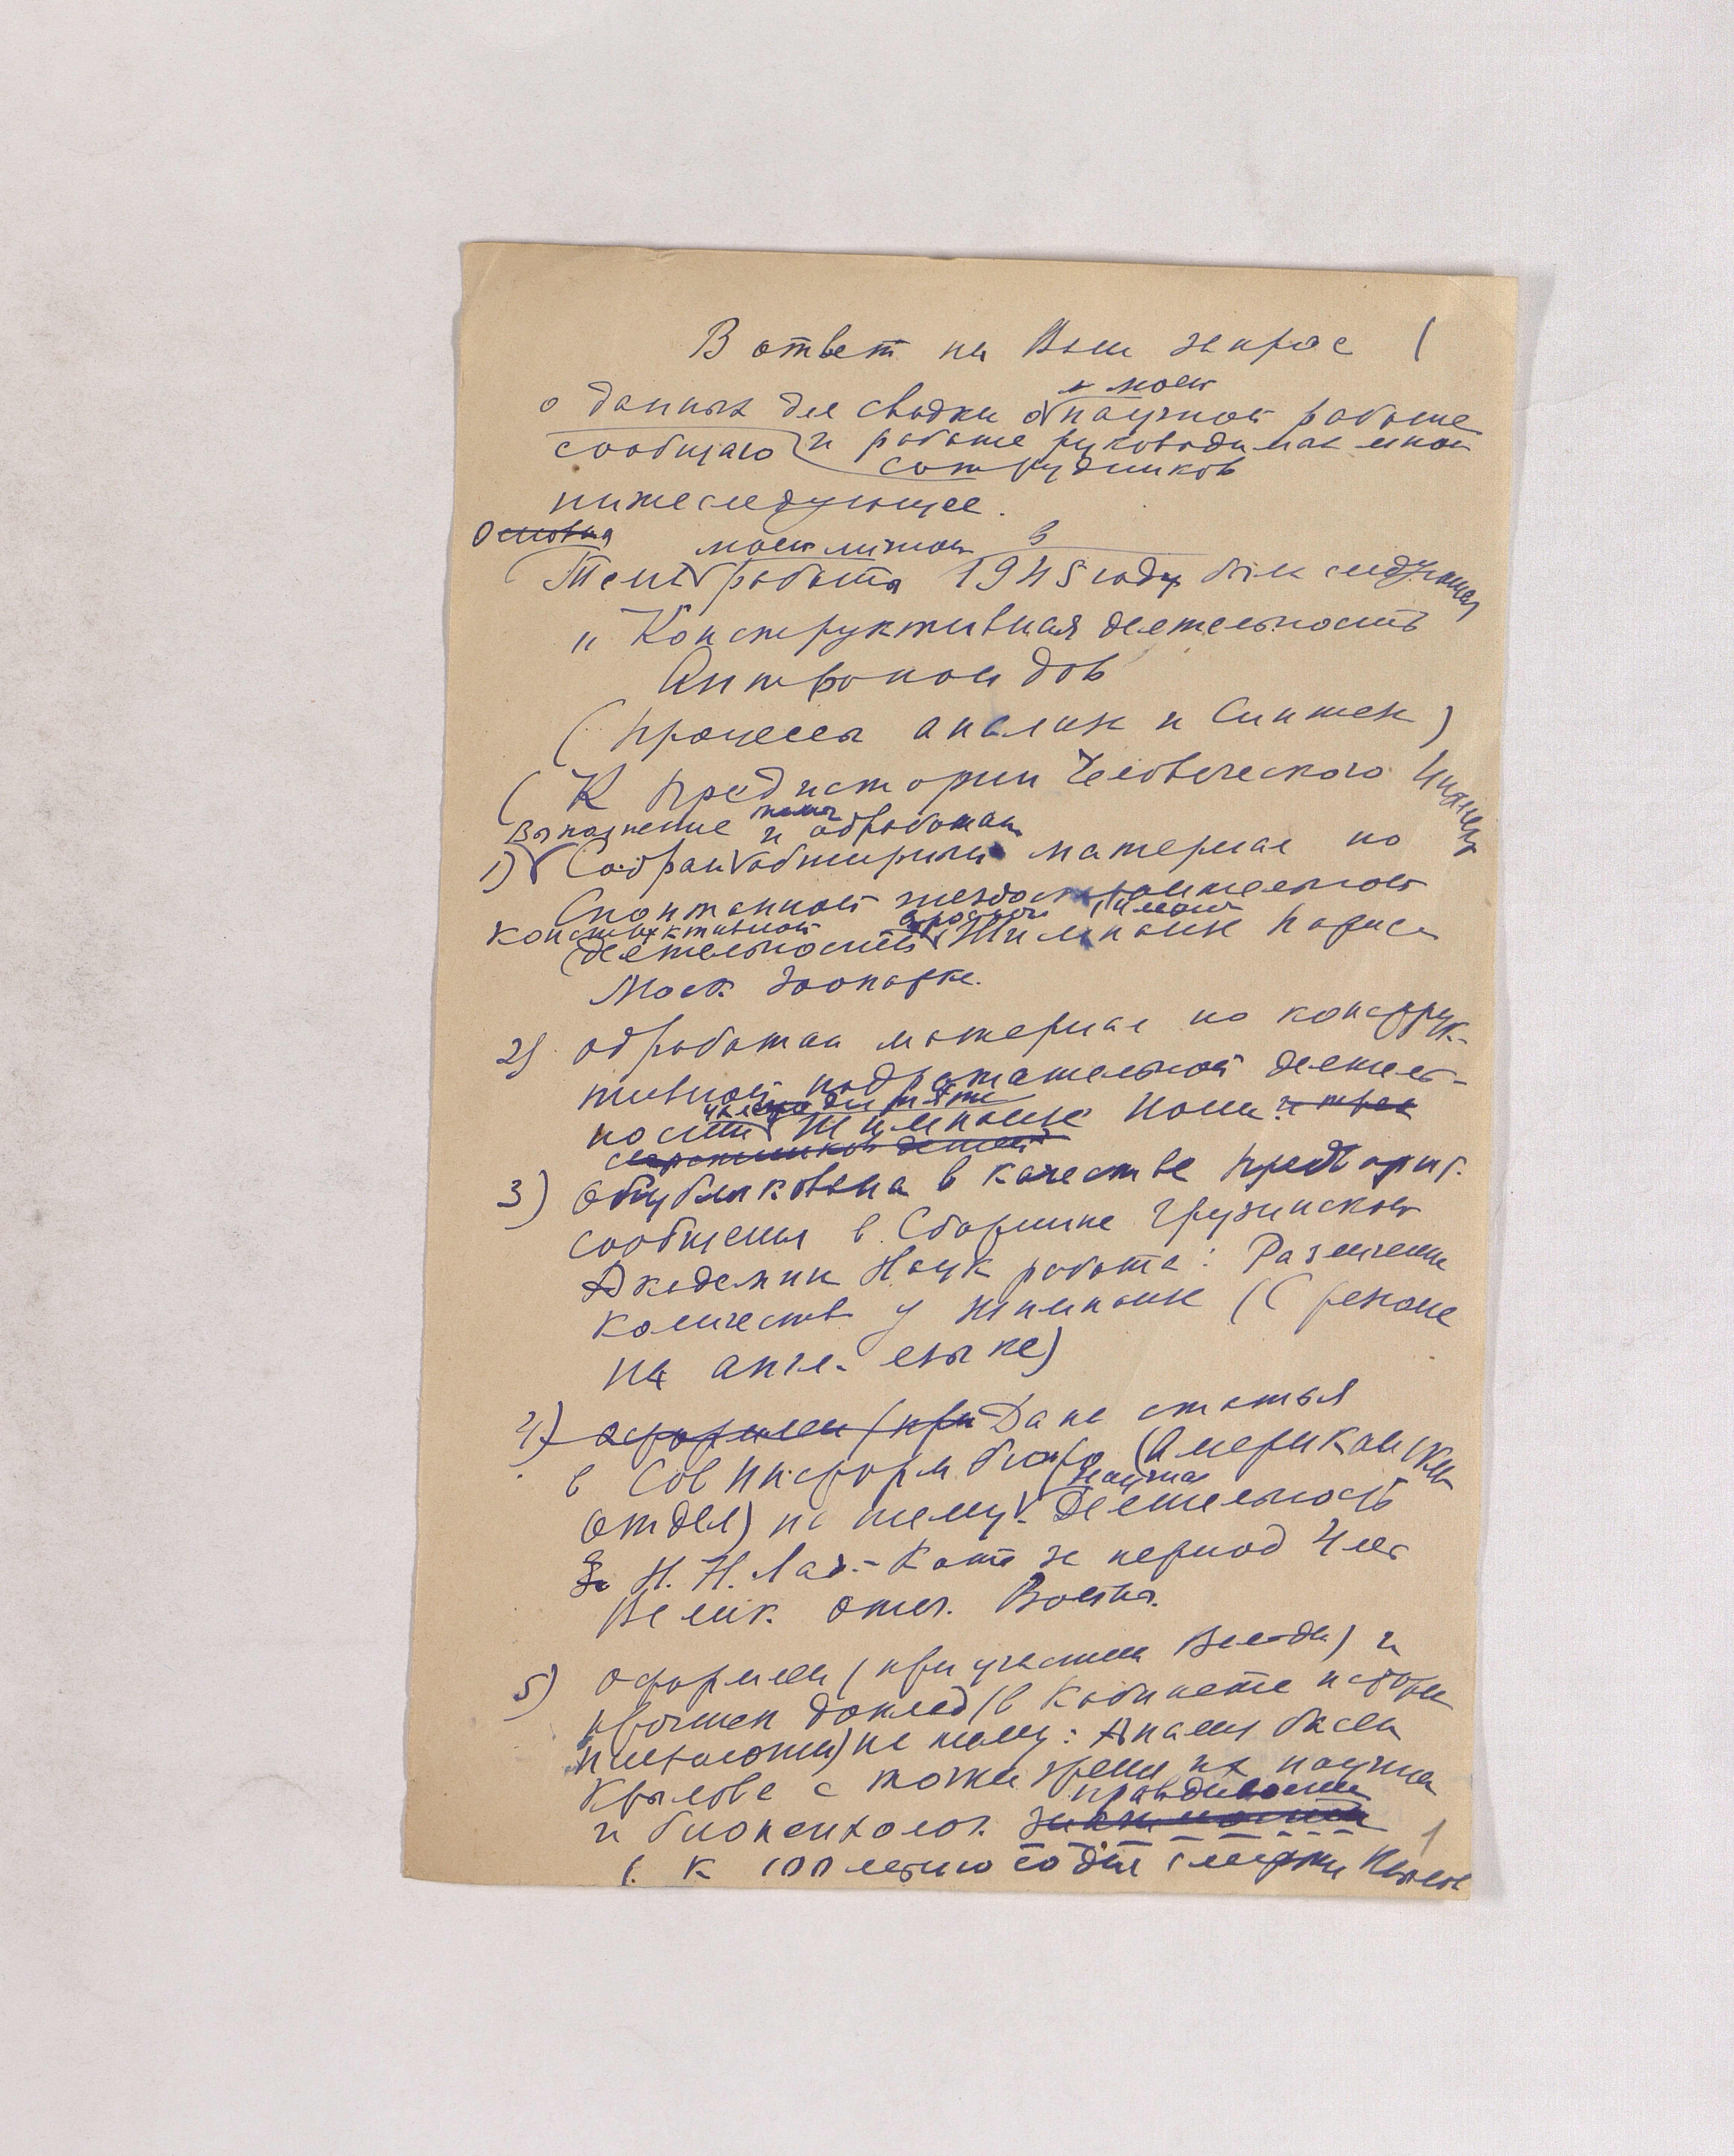 В ответ на Ваш запрос
о моей
о данных для сводки о научной работе
сообщаю и работе руководимых мной
сотрудников
нижеследующее.
Основная
моей личной в
Тема работы 1945 году был следующая
„ Конструктивная деятельность
Антропоидов
( процессы анализа и синтеза )
( К предистории Человеческого
Выполнение темы
1) Собран и обработан обширный материал по
спонтанной гнездостроительной
конструктивной взрослого
деятельности Шимпанзе Париса
Моск. Зоопарке.
2) обработан материал по конструк-
тивной подражательной деятель-
ности дитяти Шимпанзе Иони и трех
3) опубликована в качестве предварит.
сообщения в Сборнике Грузинской
Академии Наук работа: Различение
количеств у шимпанзе (С резюме
на англ. языке)
4) оформлен (при Дана статья
в Совинформбюро (Американский
научная
отдел) на тему: Деятельность
Н. Н. Лад.-Котс за период 4 лет
Велик. отеч. Войны.
5) оформлен (при участии и
прочтен доклад (в Кабинете истории
на тему: Анализ басен
Крылова с точки зрения их научной
правдивости
и биопсихолог.
( к 100 летию со дня смерти
1